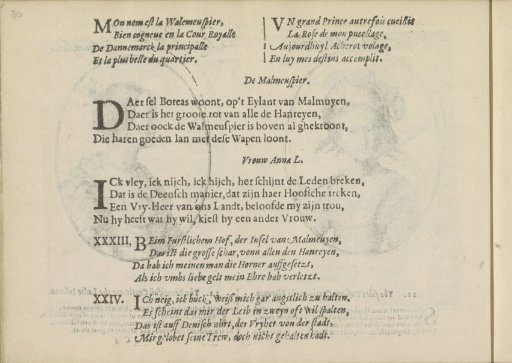 30
MOn nom est la Walemeuspier,
Bien cogneue en la Cour Royalle
De Dannemarck la principalle
Et la plus belle du quartier.
VN grand Prince autrefois cueillit
La Rose de mon pucellage,
Aujourdhuyl Acherot volage,
En luy mes destins accomplit.
De Malmeuspier.
DAer fel Boreas woont, op't Eylant van Malmuyen,
Daer is het groote rot van alle de Hanreyen,
Daer oock de Walmeuspier is boven al ghekroont,
Die haren goeden lan met dese Wapen loont.
Vrouw Anna L.
ICk vley, ick nijch, ick hijch, het schijnt de Leden breken,
Dat is de Deensch manier, dat zijn haer Hoofsche treken,
Een Vry-Heer van ons Landt, beloofde my zijn trou,
Nu hy heeft wat hy wil, kiest hy een ander Vrouw.
XXXIII, BEim Furstlichem Hof, der Insel van Malmeuyen,
Da ist die grosse schar, vonn allen den Hanreyen,
Da hab ich meinen man die Horner auffgesetzt,
Als ich umbs liebe gelt mein Ehre hab verletzt.
XXIV. ICh neig, ick buck, weiß mich gar angstlich zu halten,
Es scheint das mir der Leib in zweyn oft wil spalten,
Das ist auff Denisch ahrt, der Vryher von der stadt,
Mir glöbet seine Trew, doch nicht gehalten hadt.